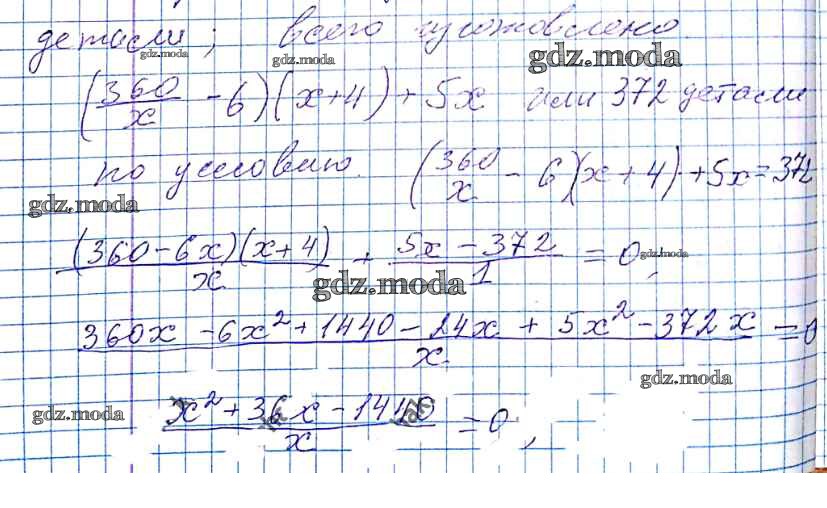 детали; всего изготовлено.
gdz.moda gdz.moda gdz.moda
(360/x - 6)(x+4) + 5x или 372 детали
по условию. (360/x - 6)(x+4)+5x=372
gdz.moda
(360-6x)(x+4)/x + 5x-372/1 = 0,
gdz.moda
gdz.moda
360x -6x²+1440-24x + 5x²-372x/x = 0
gdz.moda
x²+36x-1440/x = 0,
gdz.moda